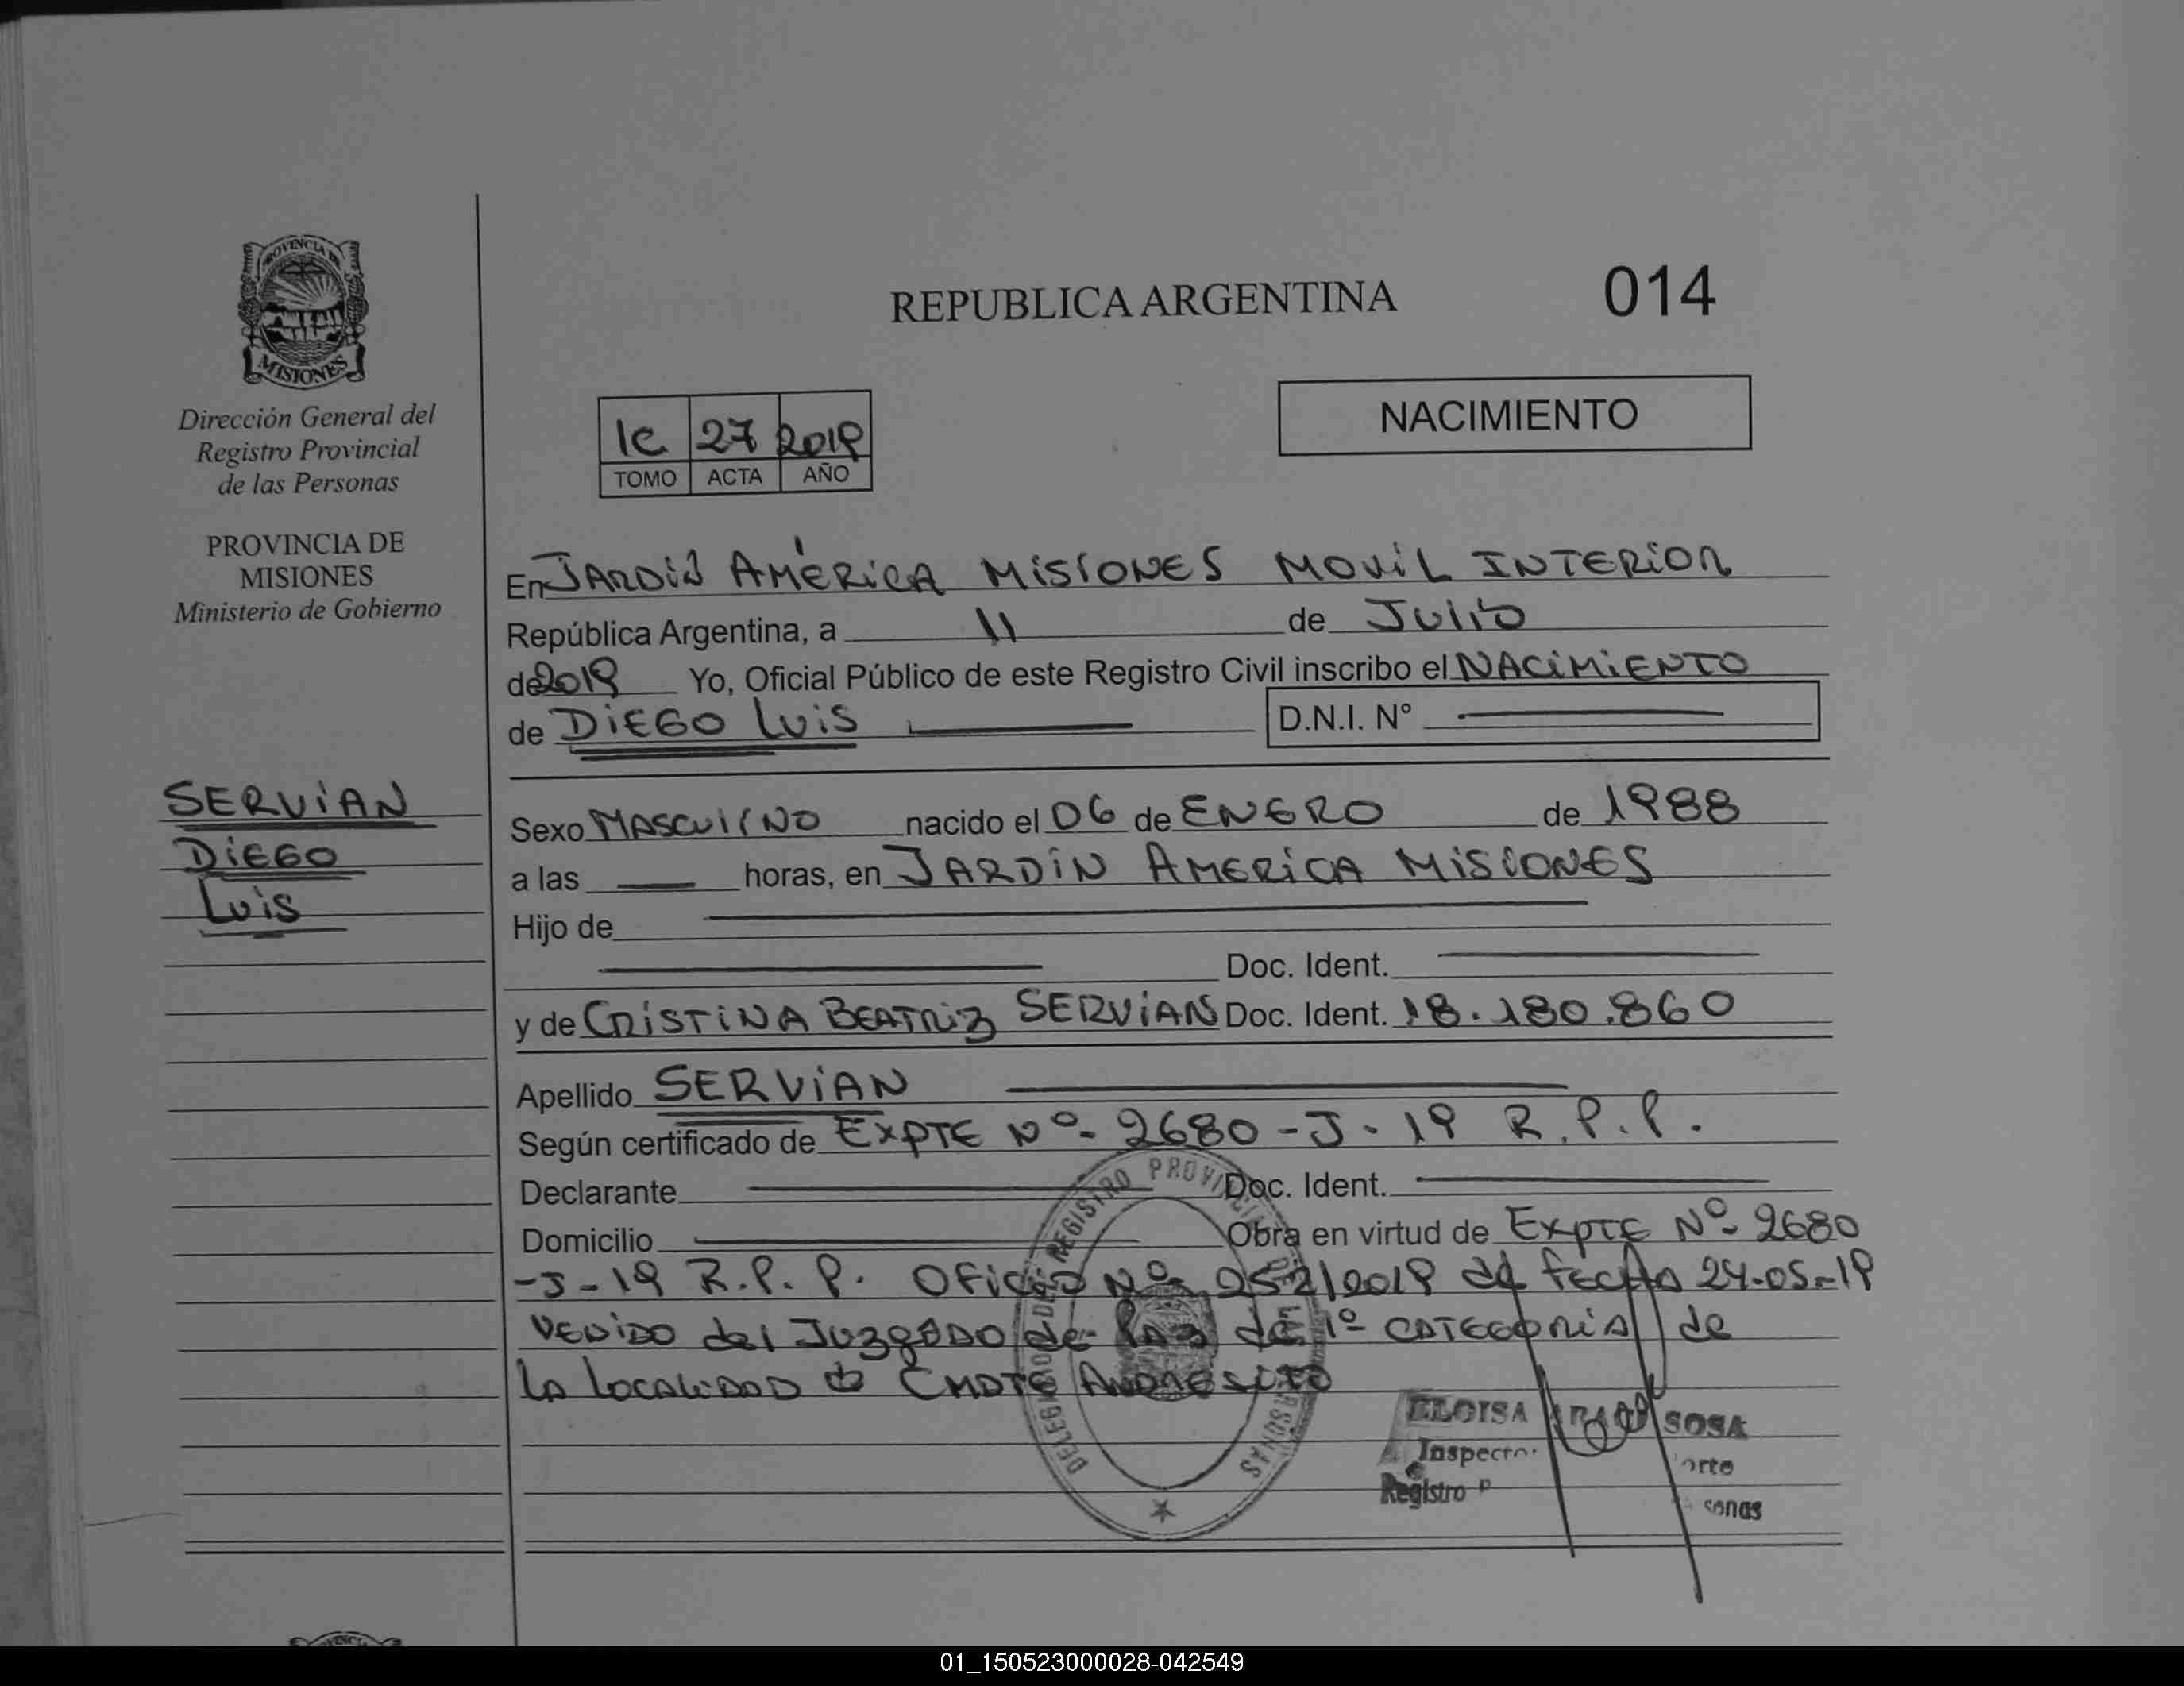 REPUBLICA ARGENTINA
014
PROVINCIA DE
MISIONES
Dirección General del
Registro Provincial
de las Personas
PROVINCIA DE
MISIONES
Ministerio de Gobierno
1C 27 2019
TOMO ACTA AÑO
NACIMIENTO
En JARDIN AMÉRICA MISIONES MOVIL INTERIOR
República Argentina, a 11 de Julio
de 2019 Yo, Oficial Público de este Registro Civil inscribo el NACIMIENTO
de DIEGO LUIS D.N.I. N°
SERVIAN
DIEGO
LUIS
Sexo MASCULINO nacido el 06 de ENERO de 1988
a las horas, en JARDIN AMERICA MISIONES
Hijo de
Doc. Ident.
y de CRISTINA BEATRIZ SERVIAN Doc. Ident. 18.180.860
Apellido SERVIAN
Según certificado de EXPTE Nº 2680-J-19 R.P.P.
Declarante Doc. Ident.
Domicilio Obra en virtud de EXPTE Nº 2680
-J-19 R.P.P. OFICIO Nº 252/2019 de fecha 24-05-19
VENIDO del JUZGADO de PAZ de 1º CATEGORIA de
LA LOCALIDAD de CMDTE ANDRESITO
DELEGACION DE REGISTRO PROVINCIAL DE LAS PERSONAS
ELOISA SOSA
Inspector
Registro P
01_150523000028-042549